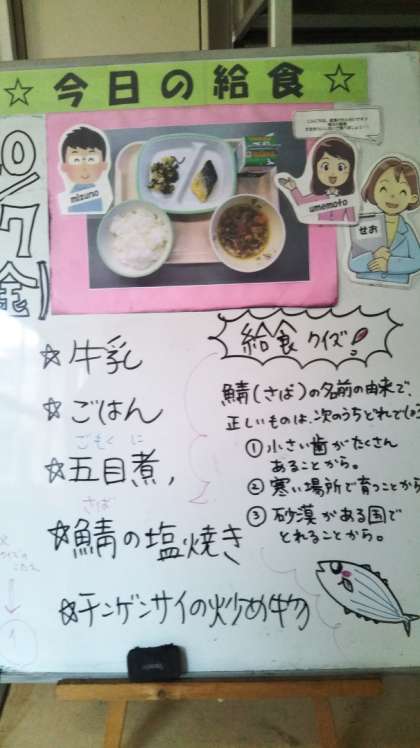 ☆今日の給食☆
10/7
(金)
mizuno
umemoto
せお
☆牛乳
☆ごはん
ごもく に
☆五目煮,
さば
☆鯖の塩焼き
☆チンゲンサイの炒め物
給食クイズ!
鯖(さば)の名前の由来で、
正しいものは、次のうちどれでしょ
① 小さい歯がたくさん
あることから。
② 寒い場所で育つことから
③ 砂漠がある国で
とれることから。
クイズの
こたえ
①